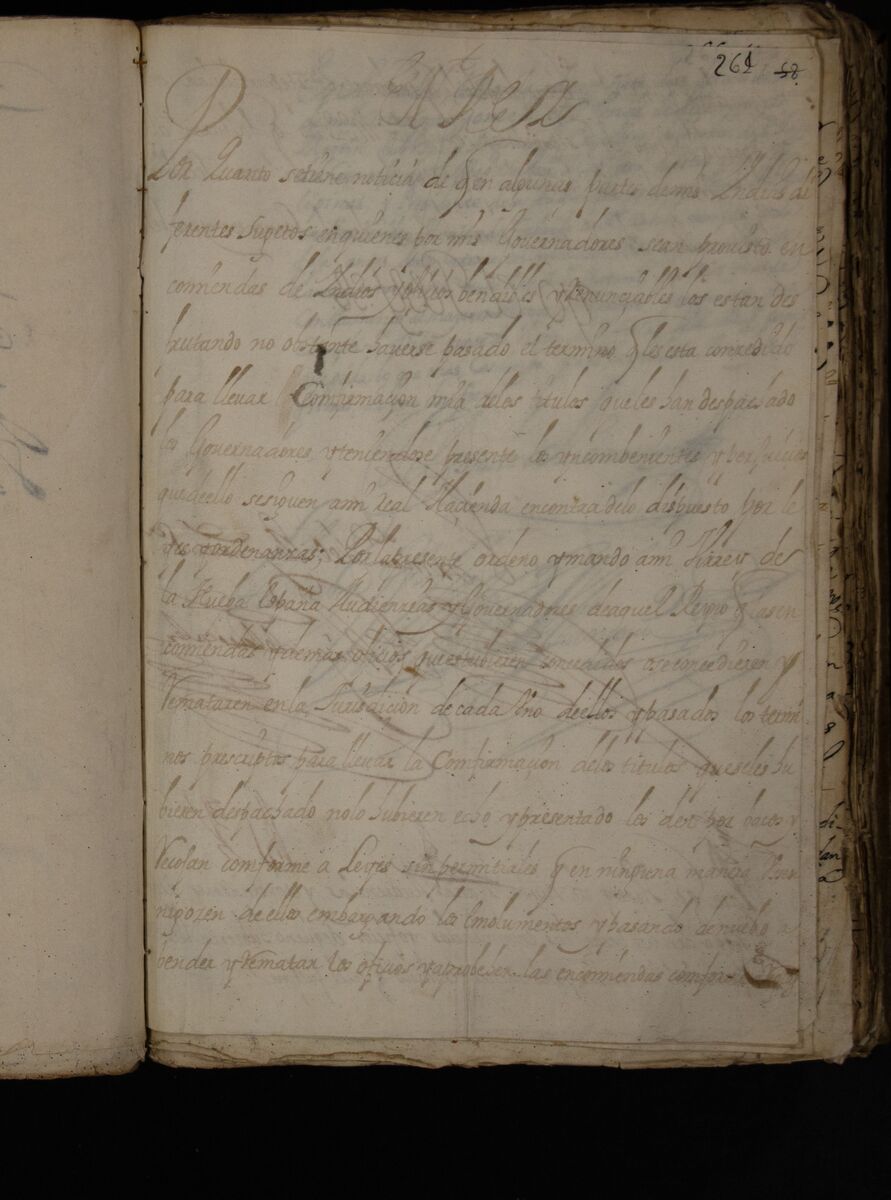 261 58
El Rey
Por Quanto setiene noticia de q en algunas partes demis Indias di
ferentes Sugetos enquienes por mis Governadores sean probeisto en
comiendas de Indios y oficios bendibles y Renunciables los estan des
frutando no obstante haverse pasado el termino q les esta consedido
para llevar Comfirmaçion mia delos titulos queles han despachado
los Governadores y teniendose presente los yncombenientes y perjuicios
quedeello sesiguen ami Real Hacienda encontra delo dispuesto por le
yes y ordenanzas; Por lapresente ordeno y mando ami Virrey de
la Nueba España Audiençias y Governadores deaquel Reyno q las en
comiendas y demas oficios que estubieren concedidos o se concedieren y
Remataren en la Jurisdicion de cada Uno deellos y pasados los termi
nos prescriptos para llevar la Comfirmaçion delos titulos queseles hu
bieren despachado nolo hubieren echo y presentado los den por bacos y
Recojan comforme a Leyes sin permitirles q en ninguna manera
nigozen de ellos embargando los Emolumentos y pasando de nuebo a
bender y Rematar los oficios y aprobeher las encomiendas comfor